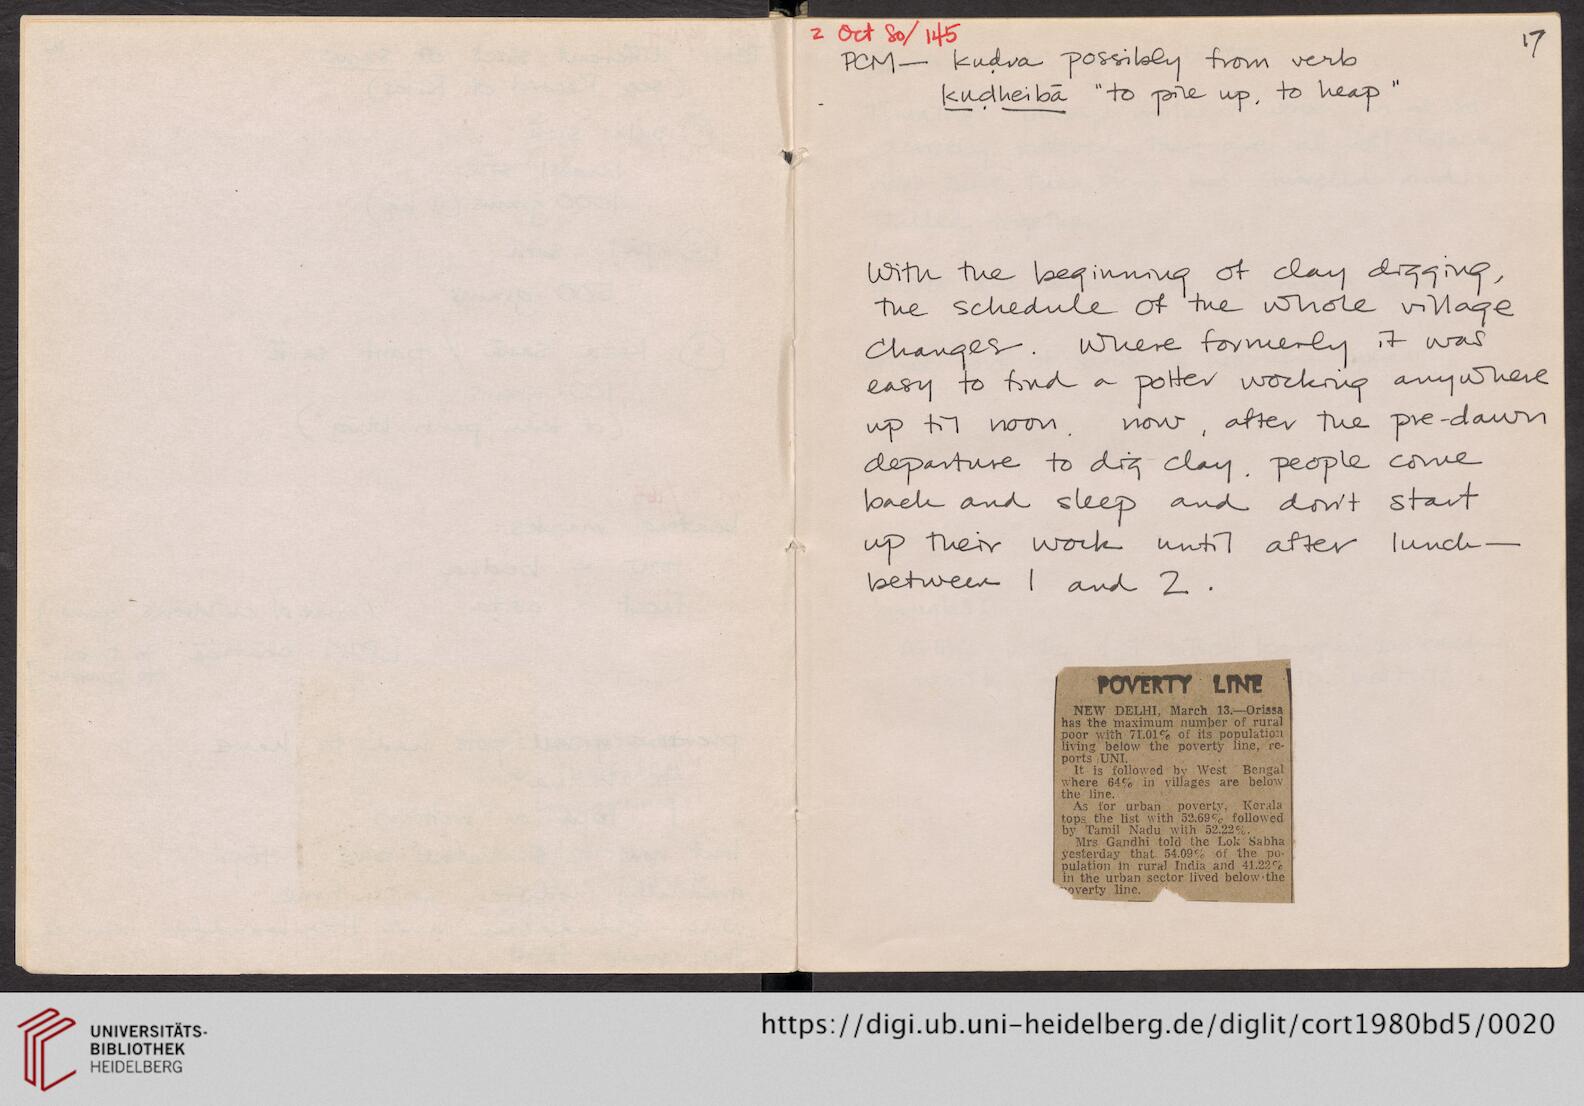 2 Oct 80/145
17
PCM — kuḍva possibly from verb
kuḍheibā "to pile up, to heap"
With the beginning of clay digging,
the schedule of the whole village
changes. Where formerly it was
easy to find a potter working anywhere
up til noon. now, after the pre-dawn
departure to dig clay, people come
back and sleep and don't start
up their work until after lunch —
between 1 and 2.
POVERTY LINE
NEW DELHI, March 13.—Orissa
has the maximum number of rural
poor with 71.01% of its population
living below the poverty line, re-
ports UNI.
It is followed by West Bengal
where 64% in villages are below
the line.
As for urban poverty, Kerala
tops the list with 52.69% followed
by Tamil Nadu with 52.22%.
Mrs Gandhi told the Lok Sabha
yesterday that 54.09% of the po-
pulation in rural India and 41.22%
in the urban sector lived below the
poverty line.
UNIVERSITÄTS-
BIBLIOTHEK
HEIDELBERG
https://digi.ub.uni-heidelberg.de/diglit/cort1980bd5/0020